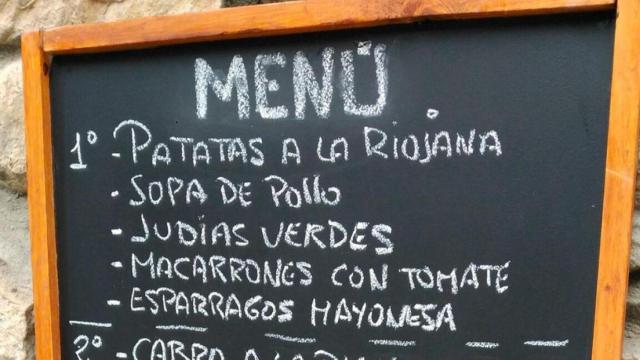 MENÚ
1º - PATATAS A LA RIOJANA
- SOPA DE POllO
- JUDÍAS VERDES
- MACARRONES CON TOMATE
- ESPARRAGOS MAYONESA
2º - CABRA A LA